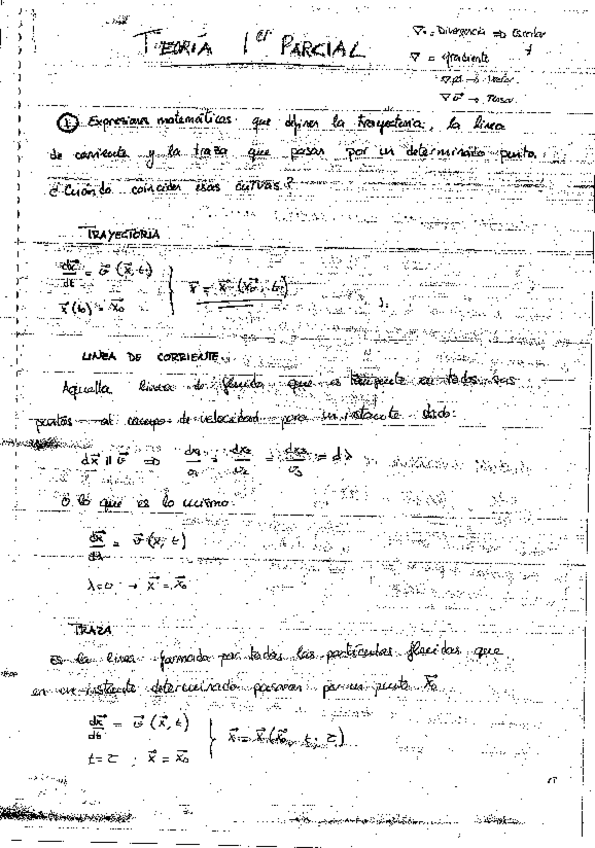 TEORÍA 1er PARCIAL
∇· = Divergencia ⇒ Escalar
∇ = gradiente
∇ø → Vector
∇v⃗ → Tensor
① Expresiones matemáticas que definen la trayectoria, la línea
de corriente y la traza que pasan por un determinado punto.
¿Cuándo coinciden esas curvas?
TRAYECTORIA
dx⃗/dt = v⃗ (x⃗, t)
x⃗(0) = x⃗₀
x⃗ = x⃗ (x⃗₀, t)
LINEA DE CORRIENTE.
Aquella linea de fluido que es tangente en todos sus
puntos al campo de velocidad para un instante dado:
dx⃗ ∥ v⃗ ⇒ dx₁/v₁ = dx₂/v₂ = dx₃/v₃ = dλ
ó lo que es lo mismo:
dx⃗/dλ = v⃗(x⃗, t)
λ=0 → x⃗ = x⃗₀
TRAZA
Es la linea formada por todas las partículas fluidas que
en un instante determinado pasaran por un punto x⃗₀
dx⃗/dt = v⃗ (x⃗, t)
t = τ ; x⃗ = x⃗₀
x⃗ = x⃗(x⃗₀, t; τ)